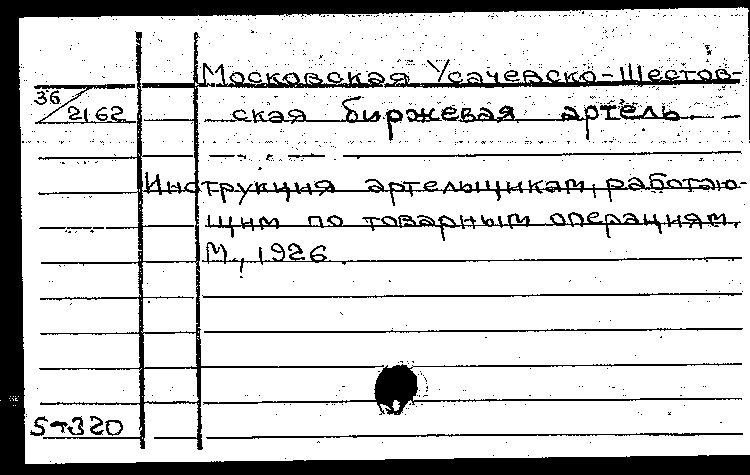 Московская Усачевско-Шестов-
36/2162
ская биржевая артель.
Инструкция артельщикам, работаю-
щим по товарным операциям.
М., 1926.